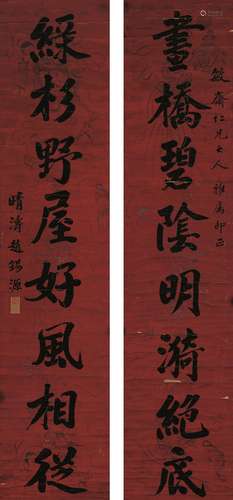 敏齋仁兄大人雅屬即正
畫橋碧陰明漪絕底
綠杉野屋好風相從
晴濤趙錫源